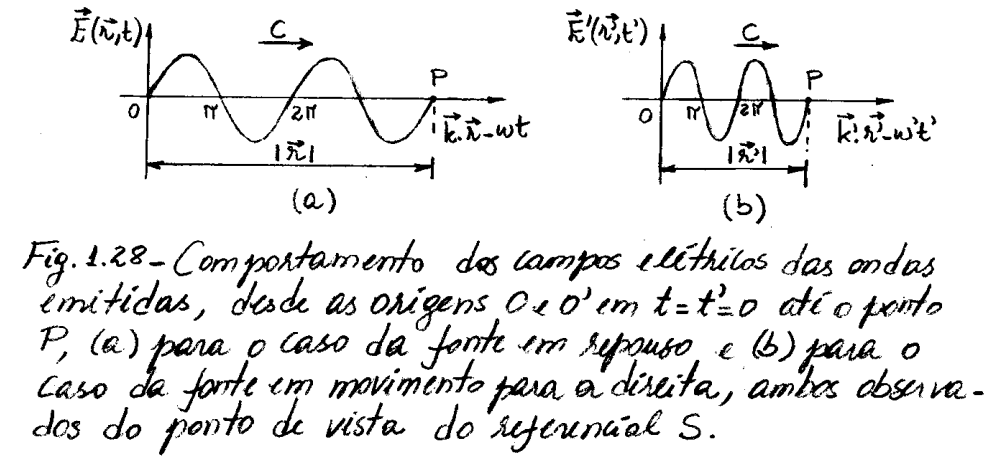 E⃗(r⃗,t)
C
P
0
π
2π
k⃗.r⃗-wt
|r⃗|
(a)
E⃗'(r⃗',t')
C
P
0
π
2π
k⃗'.r⃗'-w't'
|r⃗'|
(b)
Fig. 1.28 - Comportamento dos campos elétricos das ondas
emitidas, desde as origens O e O' em t=t'=0 até o ponto
P, (a) para o caso da fonte em repouso e (b) para o
caso da fonte em movimento para a direita, ambos observa-
dos do ponto de vista do referencial S.